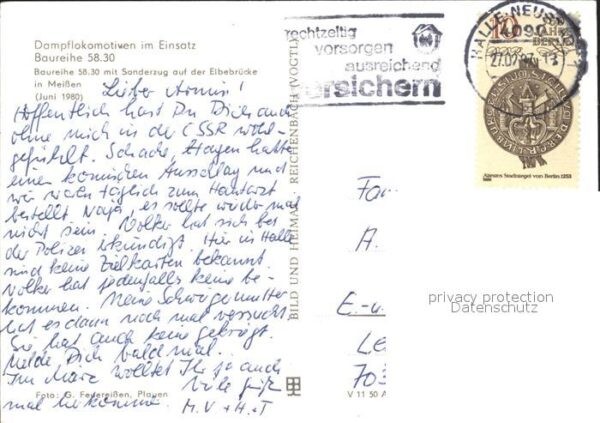 Dampflokomotiven im Einsatz
Baureihe 58.30
Baureihe 58.30 mit Sonderzug auf der Elbebrücke
in Meißen
(Juni 1980)
Lieber Armin!
Hoffentlich hast Du Dich auch
ohne mich in der CSSR wohl-
gefühlt. Schade, Hagen hatte
einen komischen Ausschlag und
wir waren täglich zum Hautarzt
bestellt. Naja, es sollte wieder mal
nicht sein. Volker hat sich bei
der Polizei erkundigt. Hier in Halle
sind keine Zielkarten bekannt.
Volker hat jedenfalls keine be-
kommen. Meine Schwiegermutter
hat es dann noch mal versucht.
Sie hat auch keine gekriegt.
Melde Dich bald mal.
Im März wolltet Ihr ja auch
mal herkommen. Viele Grüße
M. V + H. + T
Foto: G. Feuereißen, Plauen
BILD UND HEIMAT REICHENBACH (VOGTL)
V 11 50 A
rechtzeitig
vorsorgen
ausreichend
versichern
HALLE-NEUSTADT
4090
27.02.
10
JAHRE
BERLIN
Ältestes Stadtsiegel von Berlin 1253
Fa
A.
E.-u
Le
703
privacy protection
Datenschutz